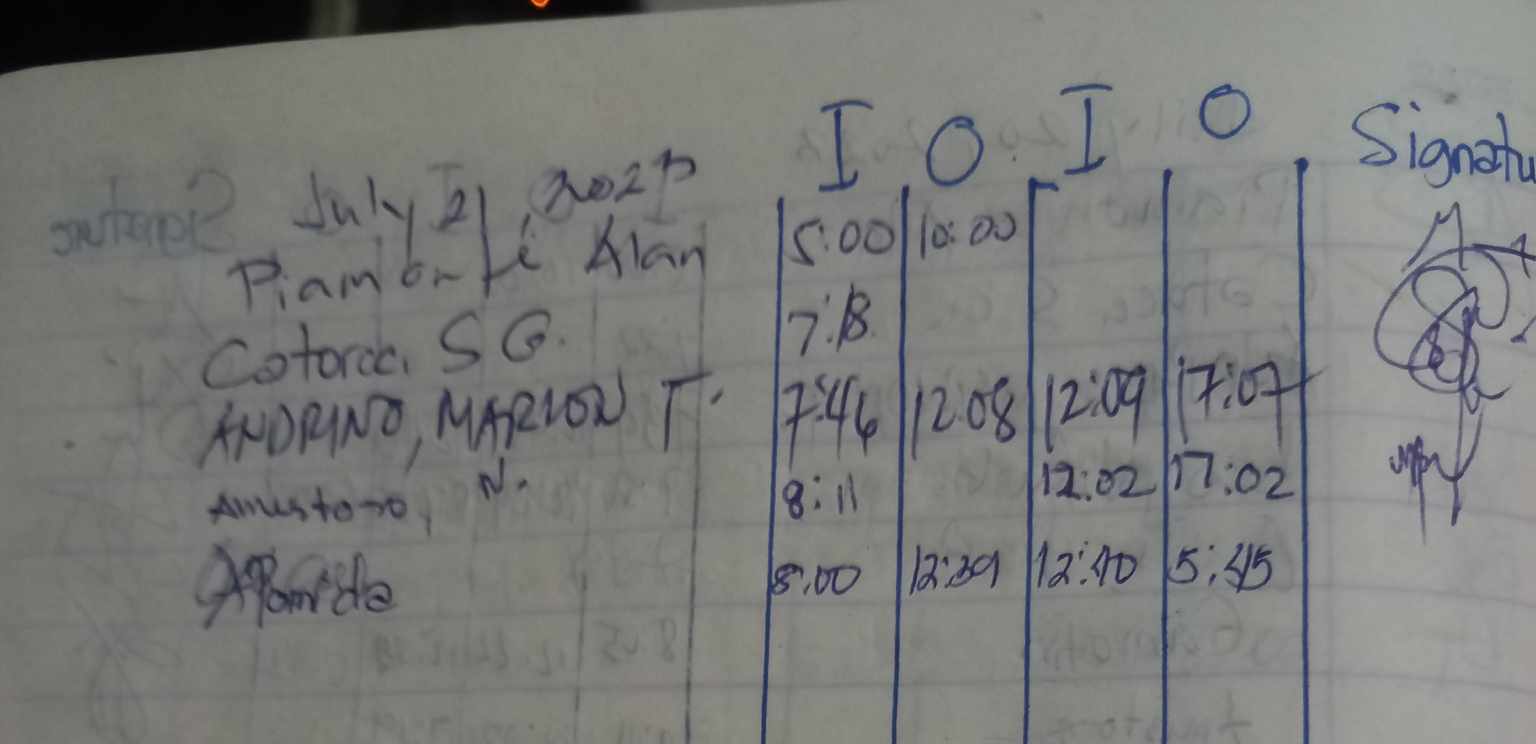 I O I O Signatu
July 21, 202
Piamonte Alan 5:00 10:00
Cotorce, S G. 7:13
ANDRINO, MARLON T. 7:46 12:08 12:09 17:07
N. 8:11 12:02 17:02
8:00 12:39 12:40 5:45